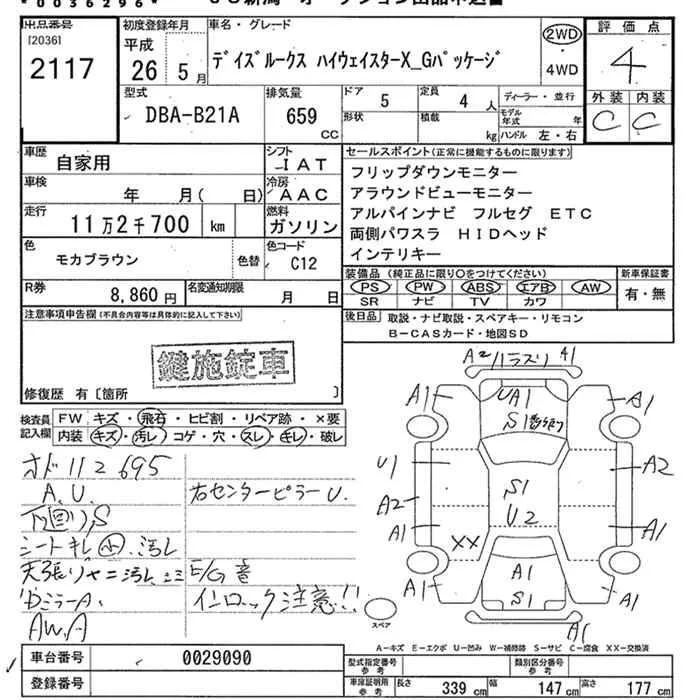 *0036296*
出品番号
[2036]
2117
初度登録年月
平成
26年5月
車名・グレード
デイズルークス ハイウェイスターX_Gパッケージ
2WD
・
4WD
評価点
4
外装 内装
C C
型式
DBA-B21A
排気量
659
CC
ドア
5
定員
4人
形状
積載
kg
ディーラー・並行
モデル年式 年
ハンドル 左・右
車歴
自家用
シフト
IAT
車検
年 月( 日)
冷房
AAC
走行
11万2千700 km
燃料
ガソリン
色
モカブラウン
色替
色コード
C12
R券
8,860円
名変通知期限
月 日
セールスポイント(正常に機能するものに限ります)
フリップダウンモニター
アラウンドビューモニター
アルパインナビ フルセグ ETC
両側パワスラ HIDヘッド
インテリキー
装備品(純正品に限り○をつけてください)
PS PW ABS エアB AW
SR ナビ TV カワ
新車保証書
有・無
後日品
取説・ナビ取説・スペアキー・リモコン
B-CASカード・地図SD
注意事項申告欄(不具合内容等は具体的に記入して下さい)
鍵施錠車
修復歴 有〔箇所 〕
検査員記入欄
FW キズ・飛石・ヒビ割・リペア跡・×要
内装 キズ・汚レ・コゲ・穴・スレ・キレ・破レ
オド112695
A.U.
下回りS
シートキレ小.汚レ
天張りヤニ汚レ
DミラーA.
AW.A
右センターピラーU.
E/G音
インロック注意!!
A2 バラスリ A1
A1 UA1 A1
S1
U1 A2
A2 S1
U2
A1 A1
XX
A1 A1 A1
S1
A1
スペア
A-キズ E-エクボ U-凹み W-補修跡 S-サビ C-腐食 XX-交換済
車台番号
0029090
登録番号
型式指定番号 参考
類別区分番号 参考
車庫証明用 参考
長さ 339cm 幅 147cm 高さ 177cm